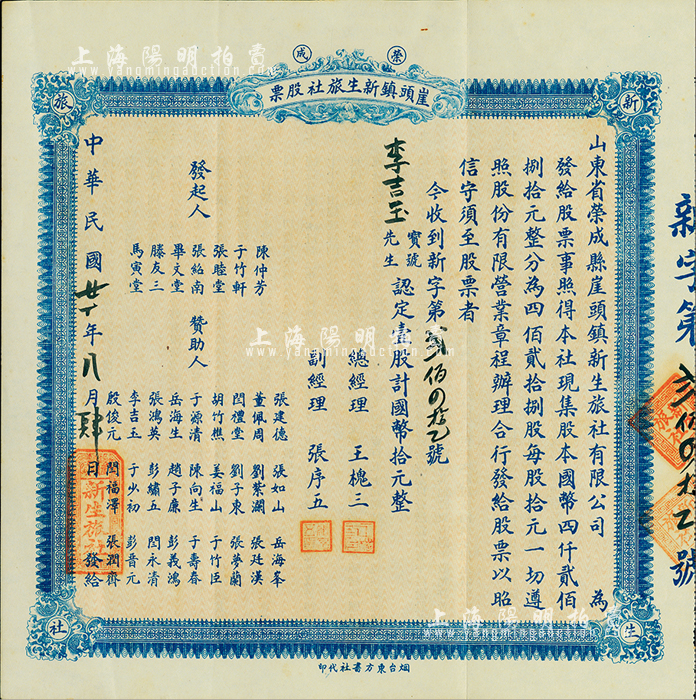 上海陽明拍賣
www.yangmingauction.com
榮成
崖頭鎮新生旅社股票
新
生
旅
社
山東省榮成縣崖頭鎮新生旅社有限公司 為
發給股票事照得本社現集股本國幣四仟貳佰
捌拾元整分為四佰貳拾捌股每股拾元一切遵
照股份有限營業章程辦理合行發給股票以昭
信守須至股票者
今收到新字第貳佰四拾乙號
李吉玉 寶號 先生 認定壹股計國幣拾元整
總經理 王槐三
副經理 張序五
發起人
陳仲芳
于竹軒
張睦堂
張紹南
畢文堂
滕友三
馬寅堂
贊助人
張建德 張如山 岳海峯
董佩周 劉紫瀾 張廷漢
閆禮堂 劉子東 張夢蘭
胡竹樵 姜福山 于竹臣
于源清 陳向生 于壽春
岳海生 趙子廉 彭義鴻
張鴻英 彭繡五 閆永清
李吉玉 于少初 彭晉元
殷俊元 閆福澤 張潤齊
中華民國廿年八月肆日發給
新生旅社
新字第貳佰四拾乙號
烟台東方書社代印
上海陽明拍賣
www.yangmingauction.com
上海陽明拍賣
www.yangmingauction.com